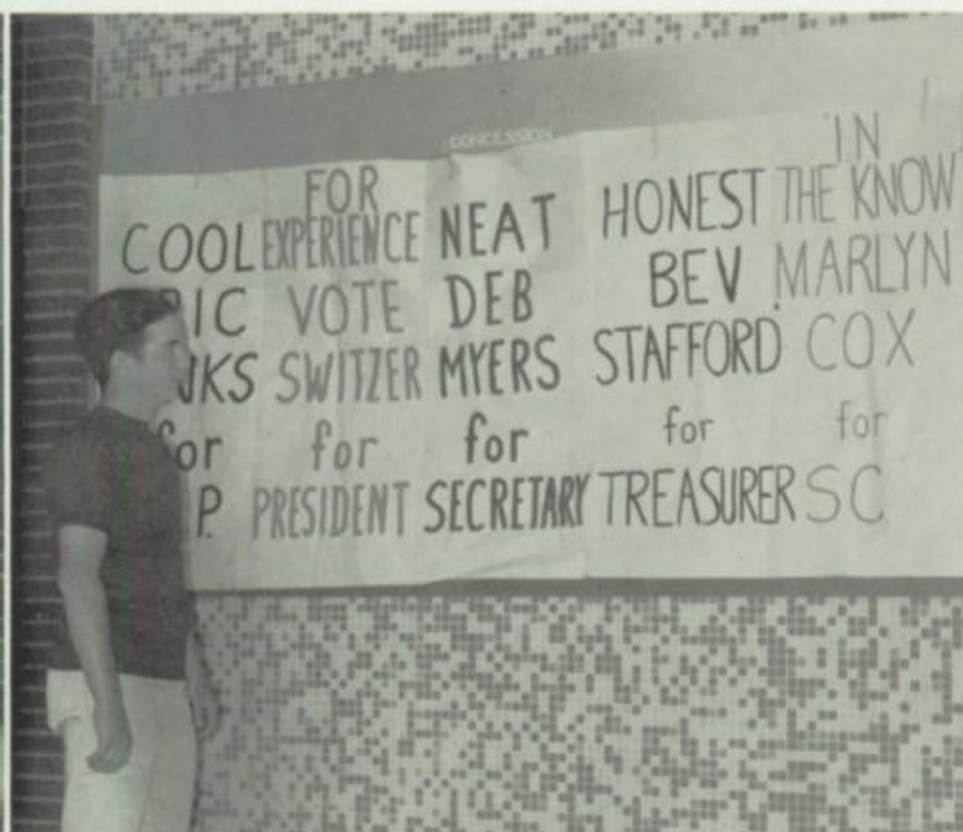 CONCESSION
COOL
for
FOR
EXPERIENCE
VOTE
SWITZER
for
PRESIDENT
NEAT
DEB
MYERS
for
SECRETARY
HONEST
BEV
STAFFORD
for
TREASURER
IN
THE KNOW
MARLYN
COX
for
SC